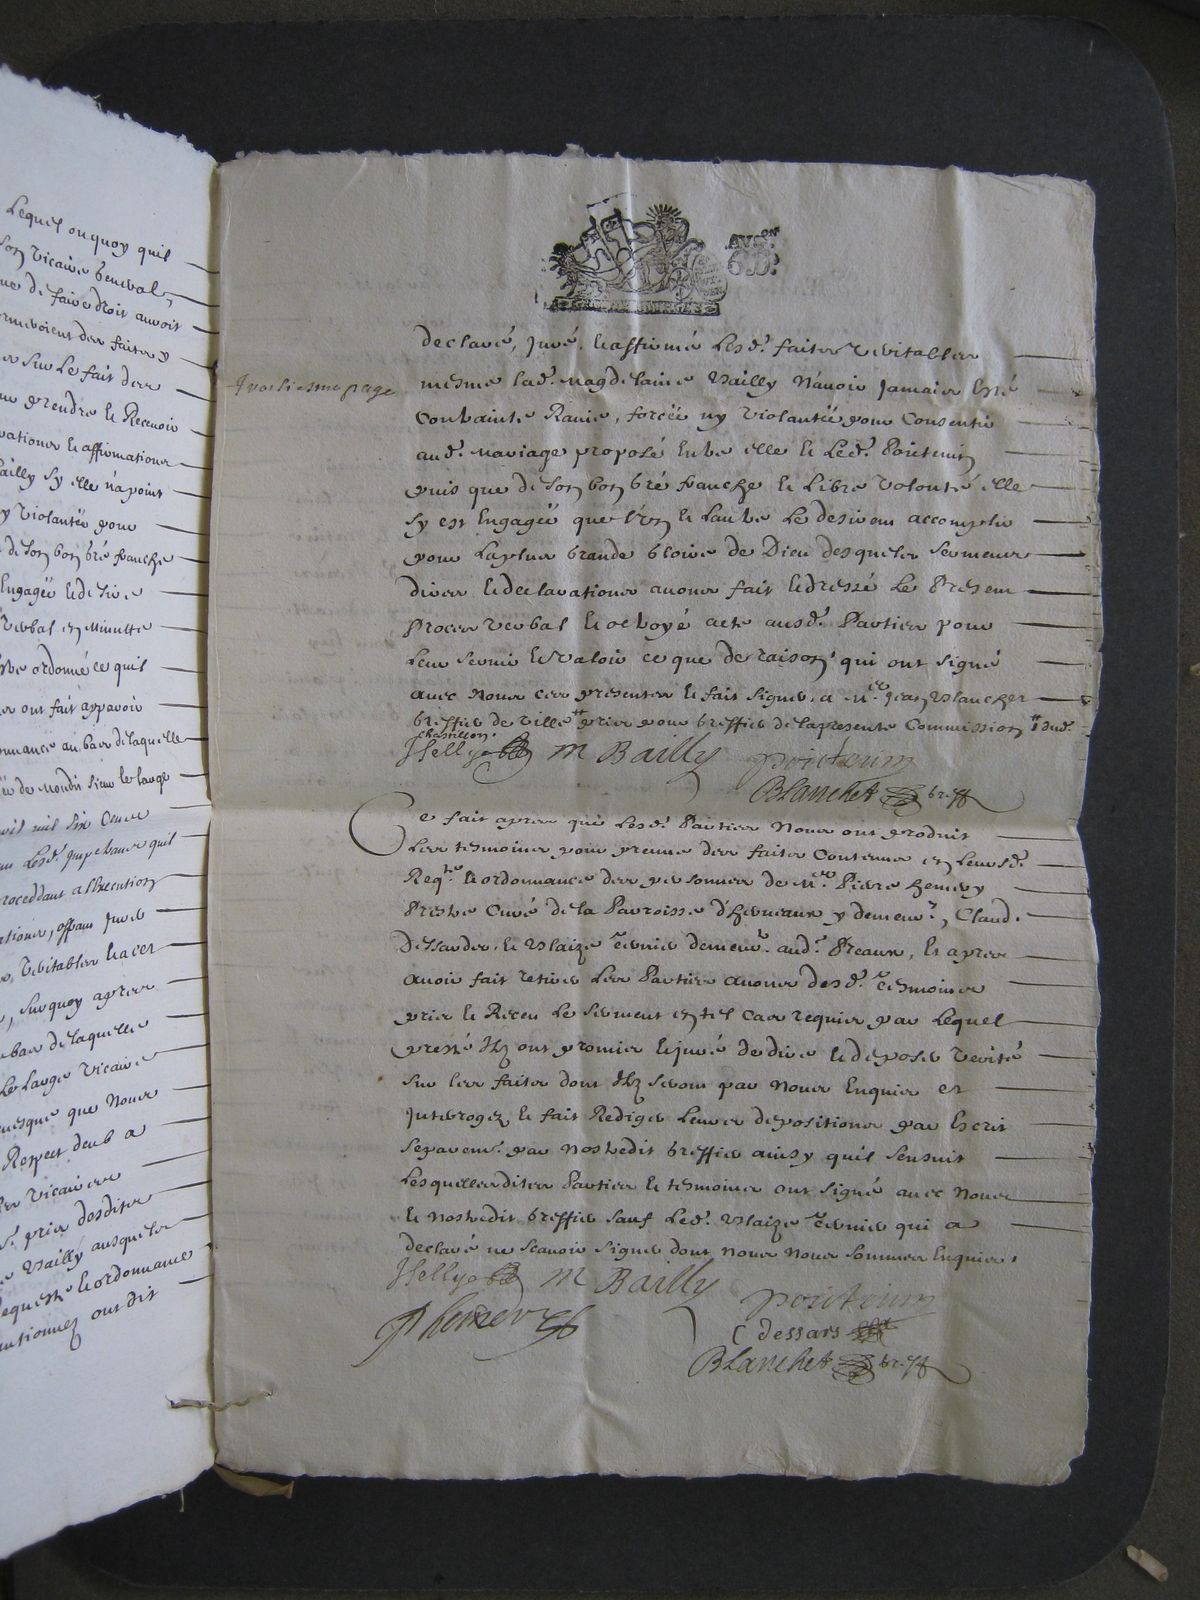 Lequel ou quoy quil
son vicaire general,
de faire droit auroit
des faites y
sur Le fait des
prendre et Recevoir
et affirmations
Bailly sy elle n'a point
ny violantée pour
de son bon gré franche
Engagée et desire
verbal en Minutte
ordonné ce quil
ont fait apparoir
ordonnance au bas de laquelle
de Mondit sieur le large
avril mil six cens
Lesd. Impetrans quil
procedans a l'execution
offrans jurer
veritables et a ces
, surquoy apres
bas de laquelle
Le Large vicaire
que Nous
Respect deub a
vicaires
pris desdites
Bailly ausquels
Requeste et ordonnance
mentionnez ont dit
AVG.ON
6 D.
declaré, juré, et affirmé Lesd. faites veritables
Troisiesme page
mesme lad. Magdelaine Bailly N'avoir jamais Esté
Contrainte Ravie, forcée ny violantée pour Consentir
aud. Mariage proposé Entre elle et Led. Poitevin
puis que de son bon gré franche et Libre volonté elle
sy est Engagée que L'un et Lautre Le desirent accomplir
pour La plus Grande Gloire de Dieu desquels sermens
dires et declarations avons fait et dressé Le Present
Proces verbal et octroyé acte ausd. Parties pour
Leur servir et valoir ce que de raison qui ont signé
avec Nous ces presentes et fait signer, a Me. Jean Blanchet
Greffier de ville pris pour Greffier de la presente Commission sud.
chastillon
M Bailly poictevin
Blanchet greff
Ce fait apres que Lesd. Parties Nous ont produit
Les tesmoins pour preuve des faites Contenus en Leursd.
Reqte. et ordonnance des personnes de Me. Pierre hemery
Prestre Curé de la Paroisse d'Heugneaux y demeurt., Claude
Dessardes, et Blaize Tevnier demeurt. aud. Preaux, et apres
avoir fait retirer Les Parties avons desd. Tesmoins
pris et Receu Le serment en tel Cas requis par Lequel
presté Ilz ont promis et juré de dire et deposer verité
sur les faites dont Ilz seront par Nous Enquis et
Interrogez et fait Rediger Leurs depositions par Escrit
separemt. par Nostredit Greffier ainsy quil sensuit
Lesquelles dites Parties et tesmoins ont signé avec Nous
et Nostredit Greffier sauf Led. Blaize Tevnier qui a
declaré ne scavoir signer dont Nous Nous sommes Enquis.
M Bailly poictevin
P hemery
C dessars
Blanchet greff